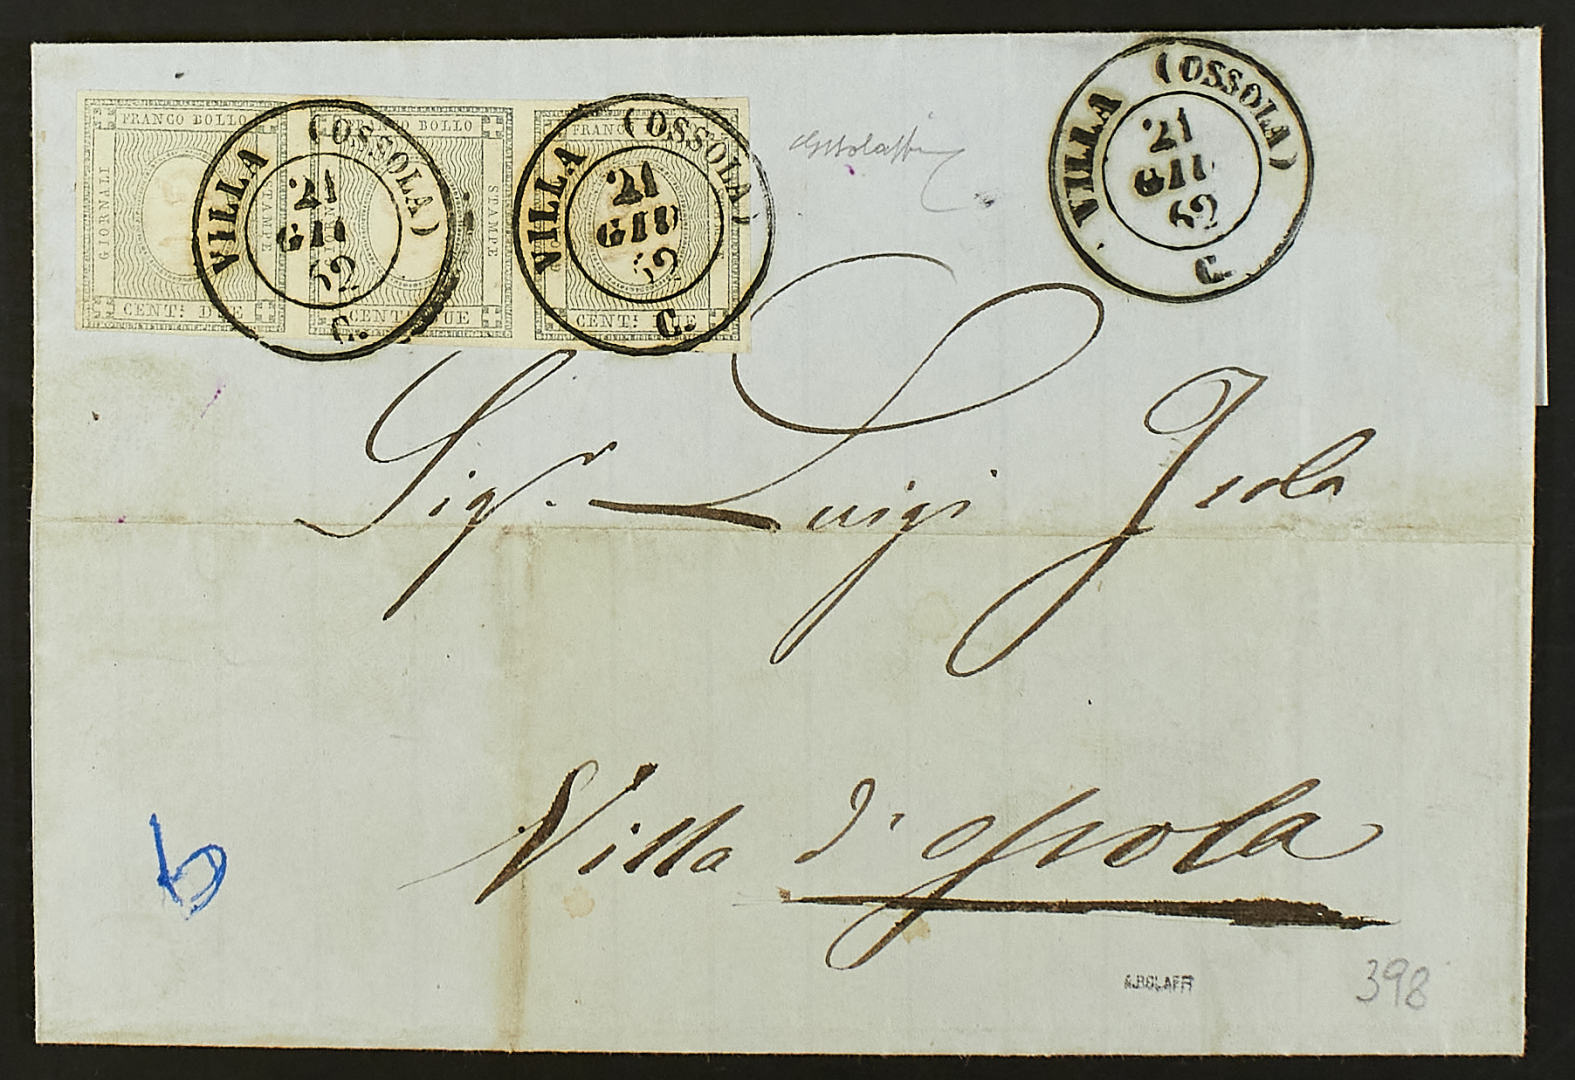 FRANCO BOLLO
GIORNALI
STAMPE
CENT: DUE
FRANCO BOLLO
STAMPE
CENT: DUE
FRANCO
CENT: DUE
VILLA (OSSOLA)
21
GIU
62
C.
VILLA (OSSOLA)
21
GIU
62
C.
VILLA (OSSOLA)
21
GIU
62
C.
Sigr. Luigi Isola
Villa d'Ossola
A.BOLAFFI
398